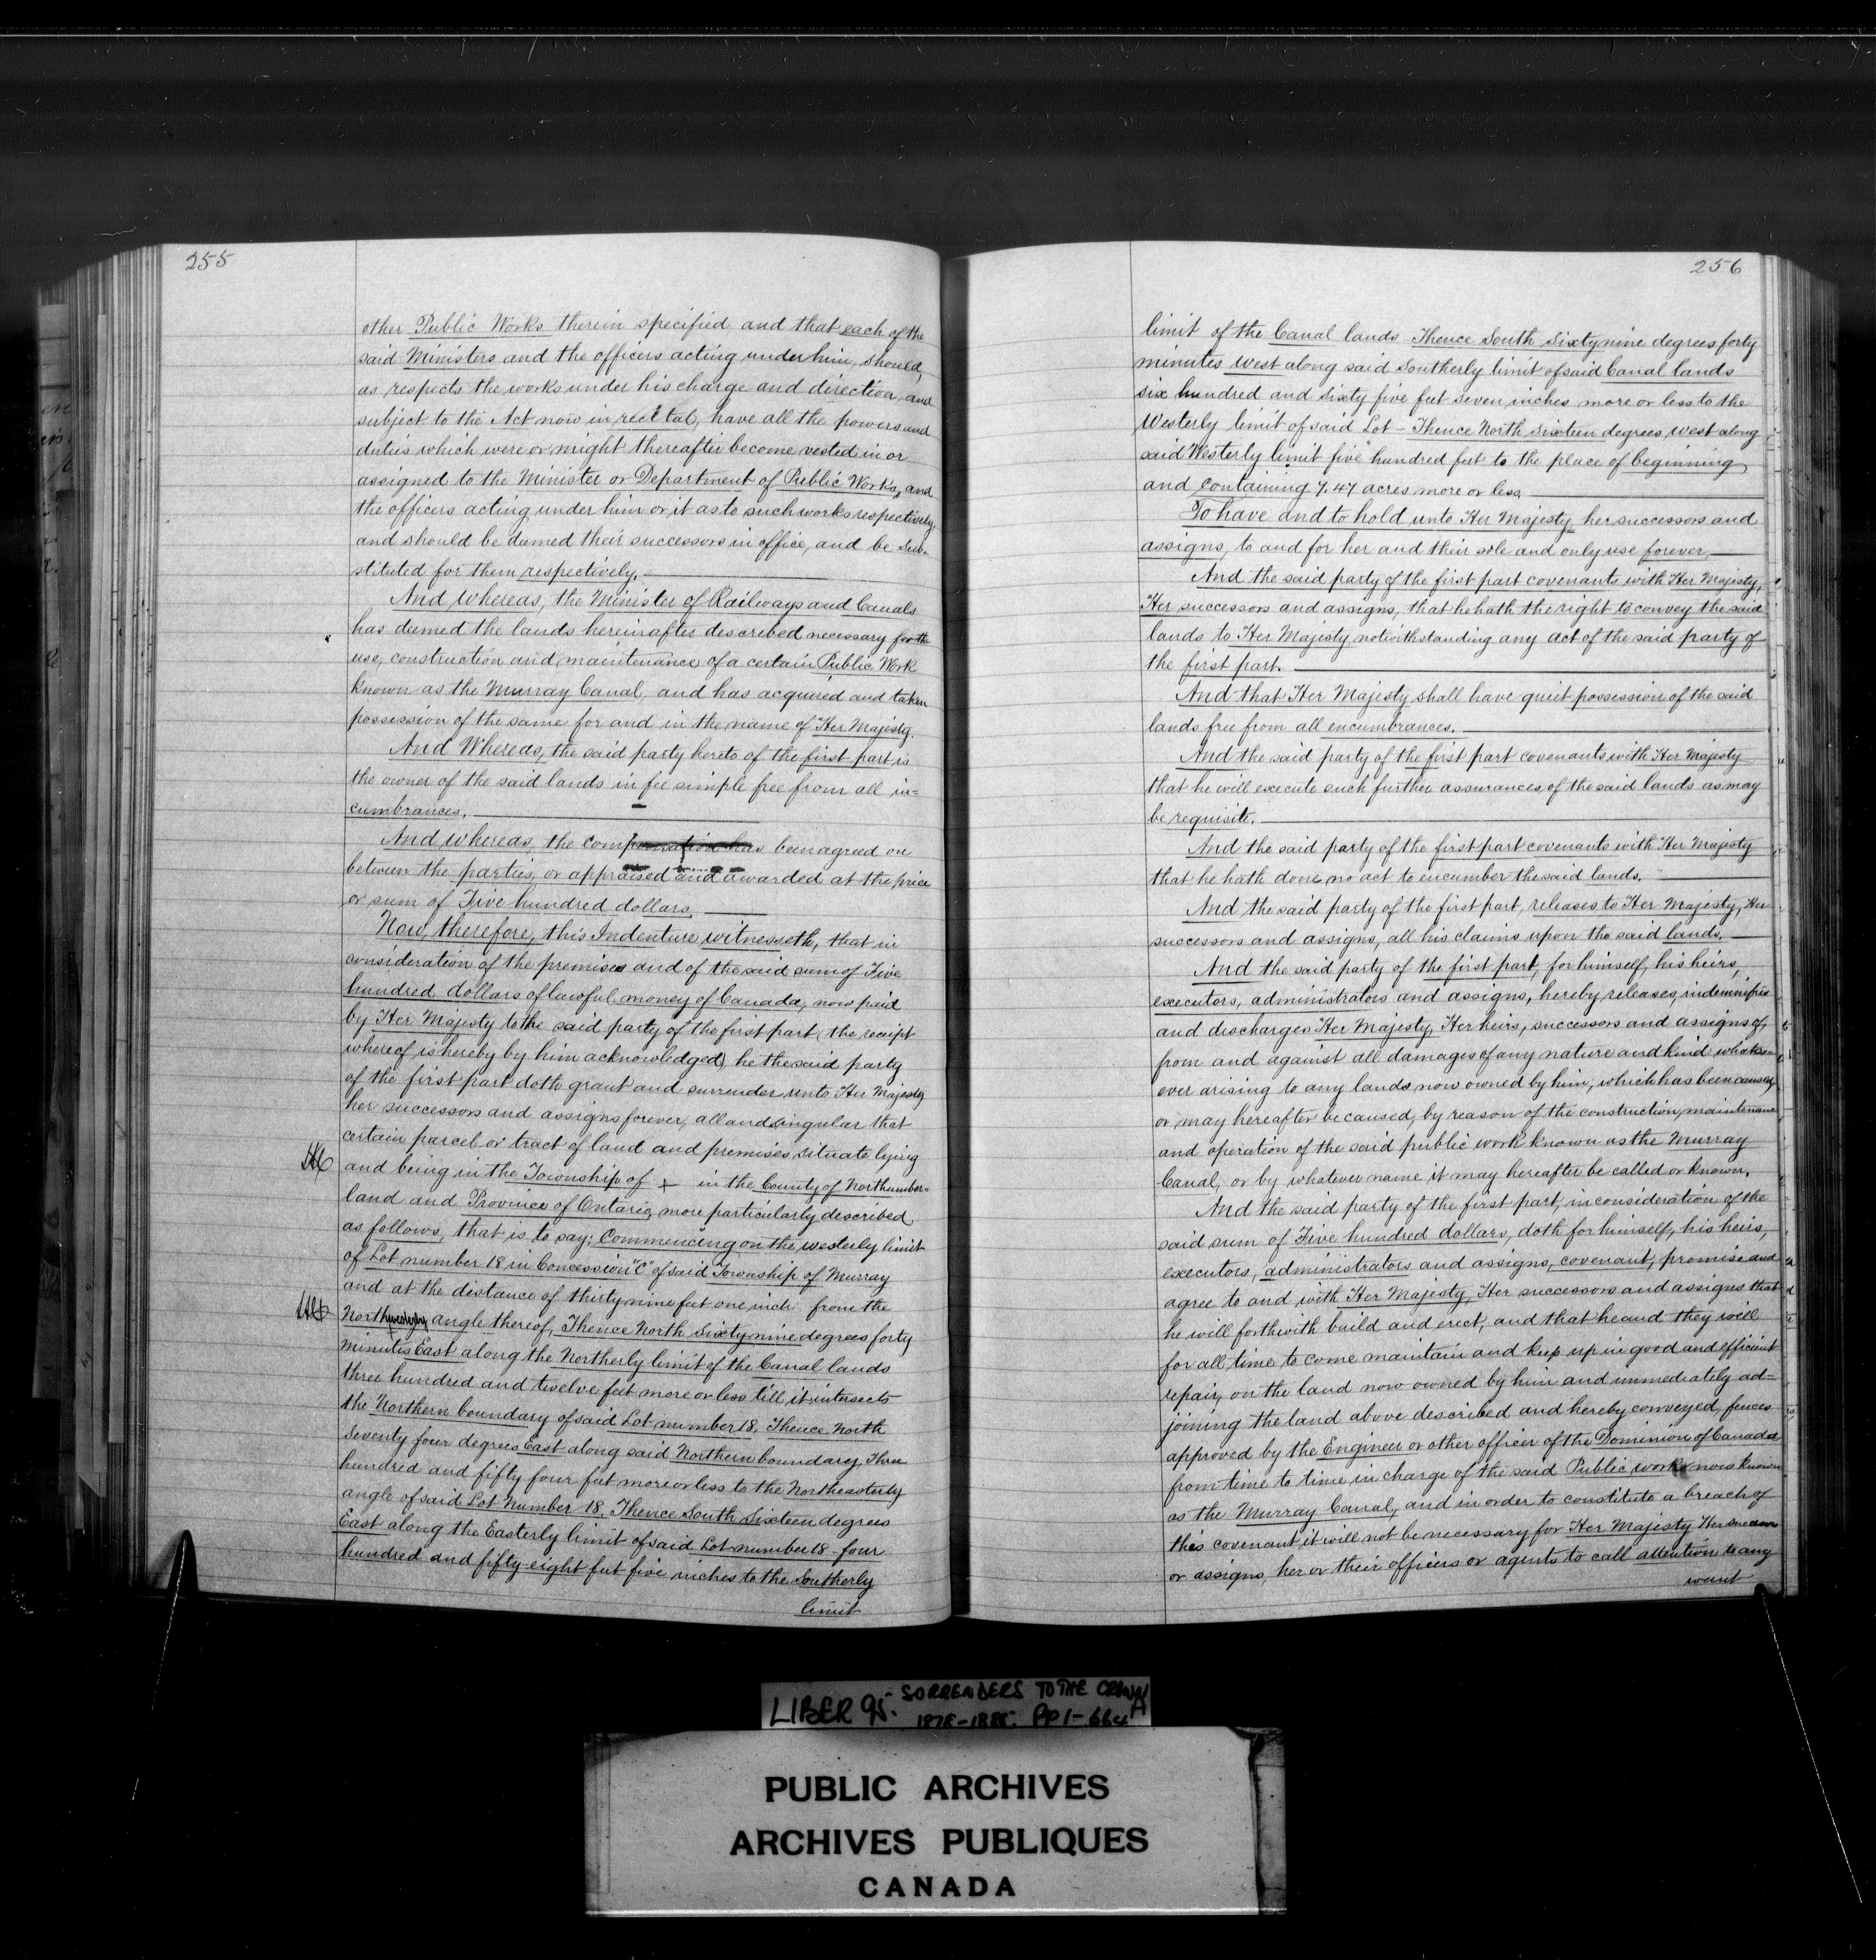 255
other Public Works therein specified and that each of the
said Ministers and the officers acting under him, should,
as respects the works under his charge and direction, and
subject to the Act now in recital, have all the powers and
duties which were or might thereafter become vested in or
assigned to the Minister or Department of Public Works, and
the officers acting under him or it as to such works respectively,
and should be deemed their successors in office, and be sub-
stituted for them, respectively.
And whereas, the Minister of Railways and Canals
has deemed the lands hereinafter described necessary for the
use, construction and maintenance of a certain Public Work
known as the Murray Canal, and has acquired and taken
possession of the same for and in the name of Her Majesty.
And Whereas, the said party hereto of the first part is
the owner of the said lands in fee simple free from all in=
cumbrances.
And whereas, the compensation has been agreed on
between the parties, or appraised and awarded at the price
or sum of Five hundred dollars,
Now, therefore, this Indenture witnesseth, that in
consideration of the premises and of the said sum of Five
hundred dollars of lawful money of Canada, now paid
by Her Majesty to the said party of the first part (the receipt
whereof is hereby by him acknowledged) he the said party
of the first part doth grant and surrender unto Her Majesty
her successors and assigns forever, all and singular that
certain parcel or tract of land and premises situate lying
and being in the Township of + in the County of Northumber=
land and Province of Ontario, more particularly described
as follows, that is to say: Commencing on the westerly limit
of Lot number 18 in Concession "C" of said Township of Murray
and at the distance of thirty nine feet one inch from the
Northwesterly angle thereof, Thence North Sixty nine degrees forty
minutes East along the Northerly limit of the Canal lands
three hundred and twelve feet more or less till it intersects
the Northern boundary of said Lot number 18. Thence North
Seventy four degrees East along said Northern boundary, Three
hundred and fifty four feet more or less to the Northeasterly
angle of said Lot Number 18. Thence South Sixteen degrees
East along the Easterly limit of said Lot number 18 four
hundred and fifty-eight feet five inches to the Southerly
limit
256
limit of the Canal lands Thence South Sixty nine degrees forty
minutes West along said Southerly limit of said Canal lands
six hundred and sixty five feet seven inches more or less to the
Westerly limit of said Lot - Thence North sixteen degrees West along
said Westerly limit five hundred feet to the place of beginning
and containing 7.47 acres more or less
To have and to hold unto Her Majesty her successors and
assigns, to and for her and their sole and only use forever.
And the said party of the first part covenants with Her Majesty,
Her successors and assigns, that he hath the right to convey the said
lands to Her Majesty notwithstanding any act of the said party of
the first part.
And that Her Majesty shall have quiet possession of the said
lands free from all encumbrances.
And the said party of the first part covenants with Her Majesty
that he will execute such further assurances of the said lands as may
be requisite.
And the said party of the first part covenants with Her Majesty
that he hath done no act to encumber the said lands.
And the said party of the first part, releases to Her Majesty, Her
successors and assigns, all his claims upon the said lands.
And the said party of the first part, for himself, his heirs,
executors, administrators and assigns, hereby releases, indemnifies
and discharges Her Majesty, Her heirs, successors and assigns of,
from and against all damages of any nature and kind whatso=
ever arising to any lands now owned by him, which has been caused,
or may hereafter be caused, by reason of the construction, maintenance
and operation of the said public work known as the Murray
Canal, or by whatever name it may hereafter be called or known.
And the said party of the first part, in consideration of the
said sum of Five hundred dollars, doth for himself, his heirs,
executors, administrators and assigns, covenant, promise and
agree to and with Her Majesty, Her successors and assigns that
he will forthwith build and erect, and that he and they will
for all time to come maintain and keep up in good and efficient
repair, on the land now owned by him and immediately ad=
joining the land above described and hereby conveyed, fences
approved by the Engineer or other officer of the Dominion of Canada
from time to time in charge of the said Public work now known
as the Murray Canal, and in order to constitute a breach of
this covenant it will not be necessary for Her Majesty Her successors
or assigns, her or their officers or agents to call attention to any
want
LIBER 95. SORRENDERS TO THE CROWN
PUBLIC ARCHIVES
ARCHIVES PUBLIQUES
CANADA